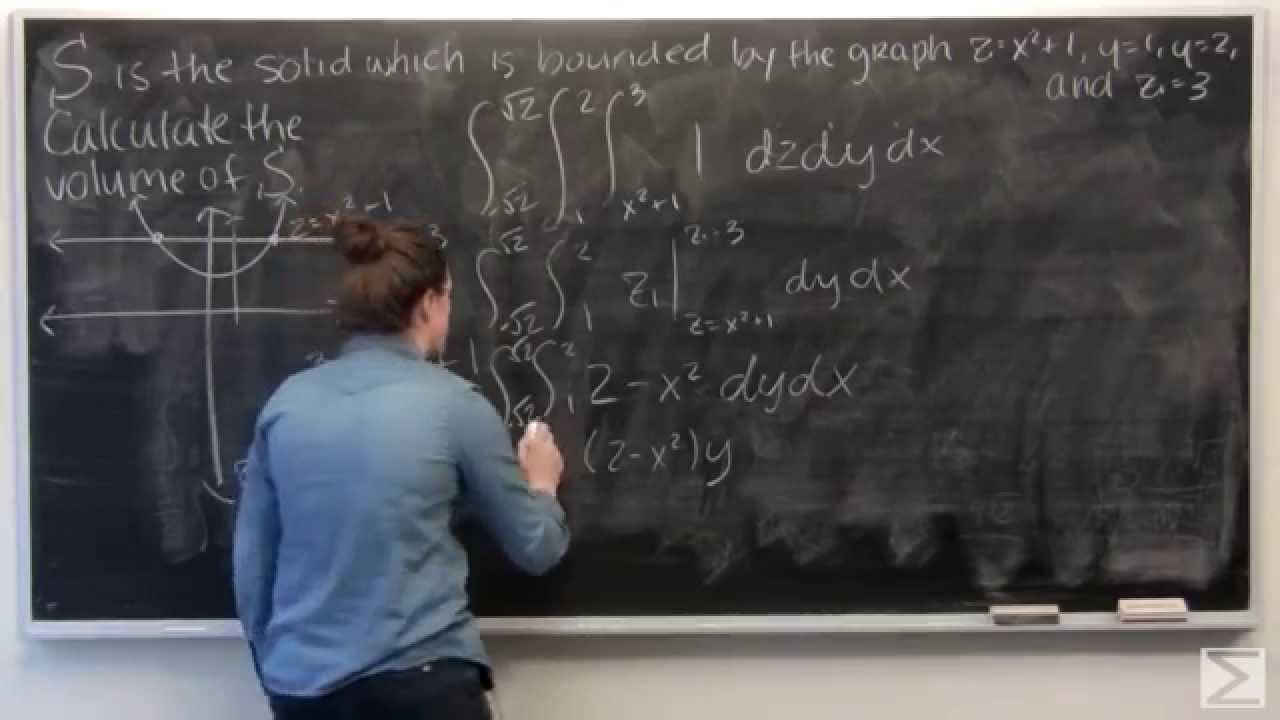 S is the solid which is bounded by the graph z=x²+1, y=1, y=2,
and z=3
Calculate the
volume of S.
∫_{-√2}^{√2} ∫_1^2 ∫_{x²+1}^3 1 dzdydx
z=x²+1
3
∫_{-√2}^{√2} ∫_1^2 z |_{z=x²+1}^{z=3} dydx
1
∫_{-√2}^{√2} ∫_1^2 2-x² dydx
(2-x²)y
Σ